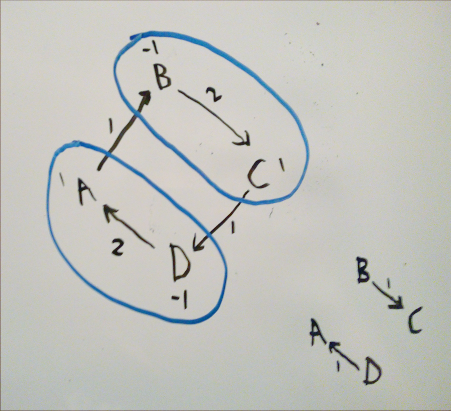 -1
B
2
1
C 1
1 A
1
2
D
-1
B
1
C
A
1
D